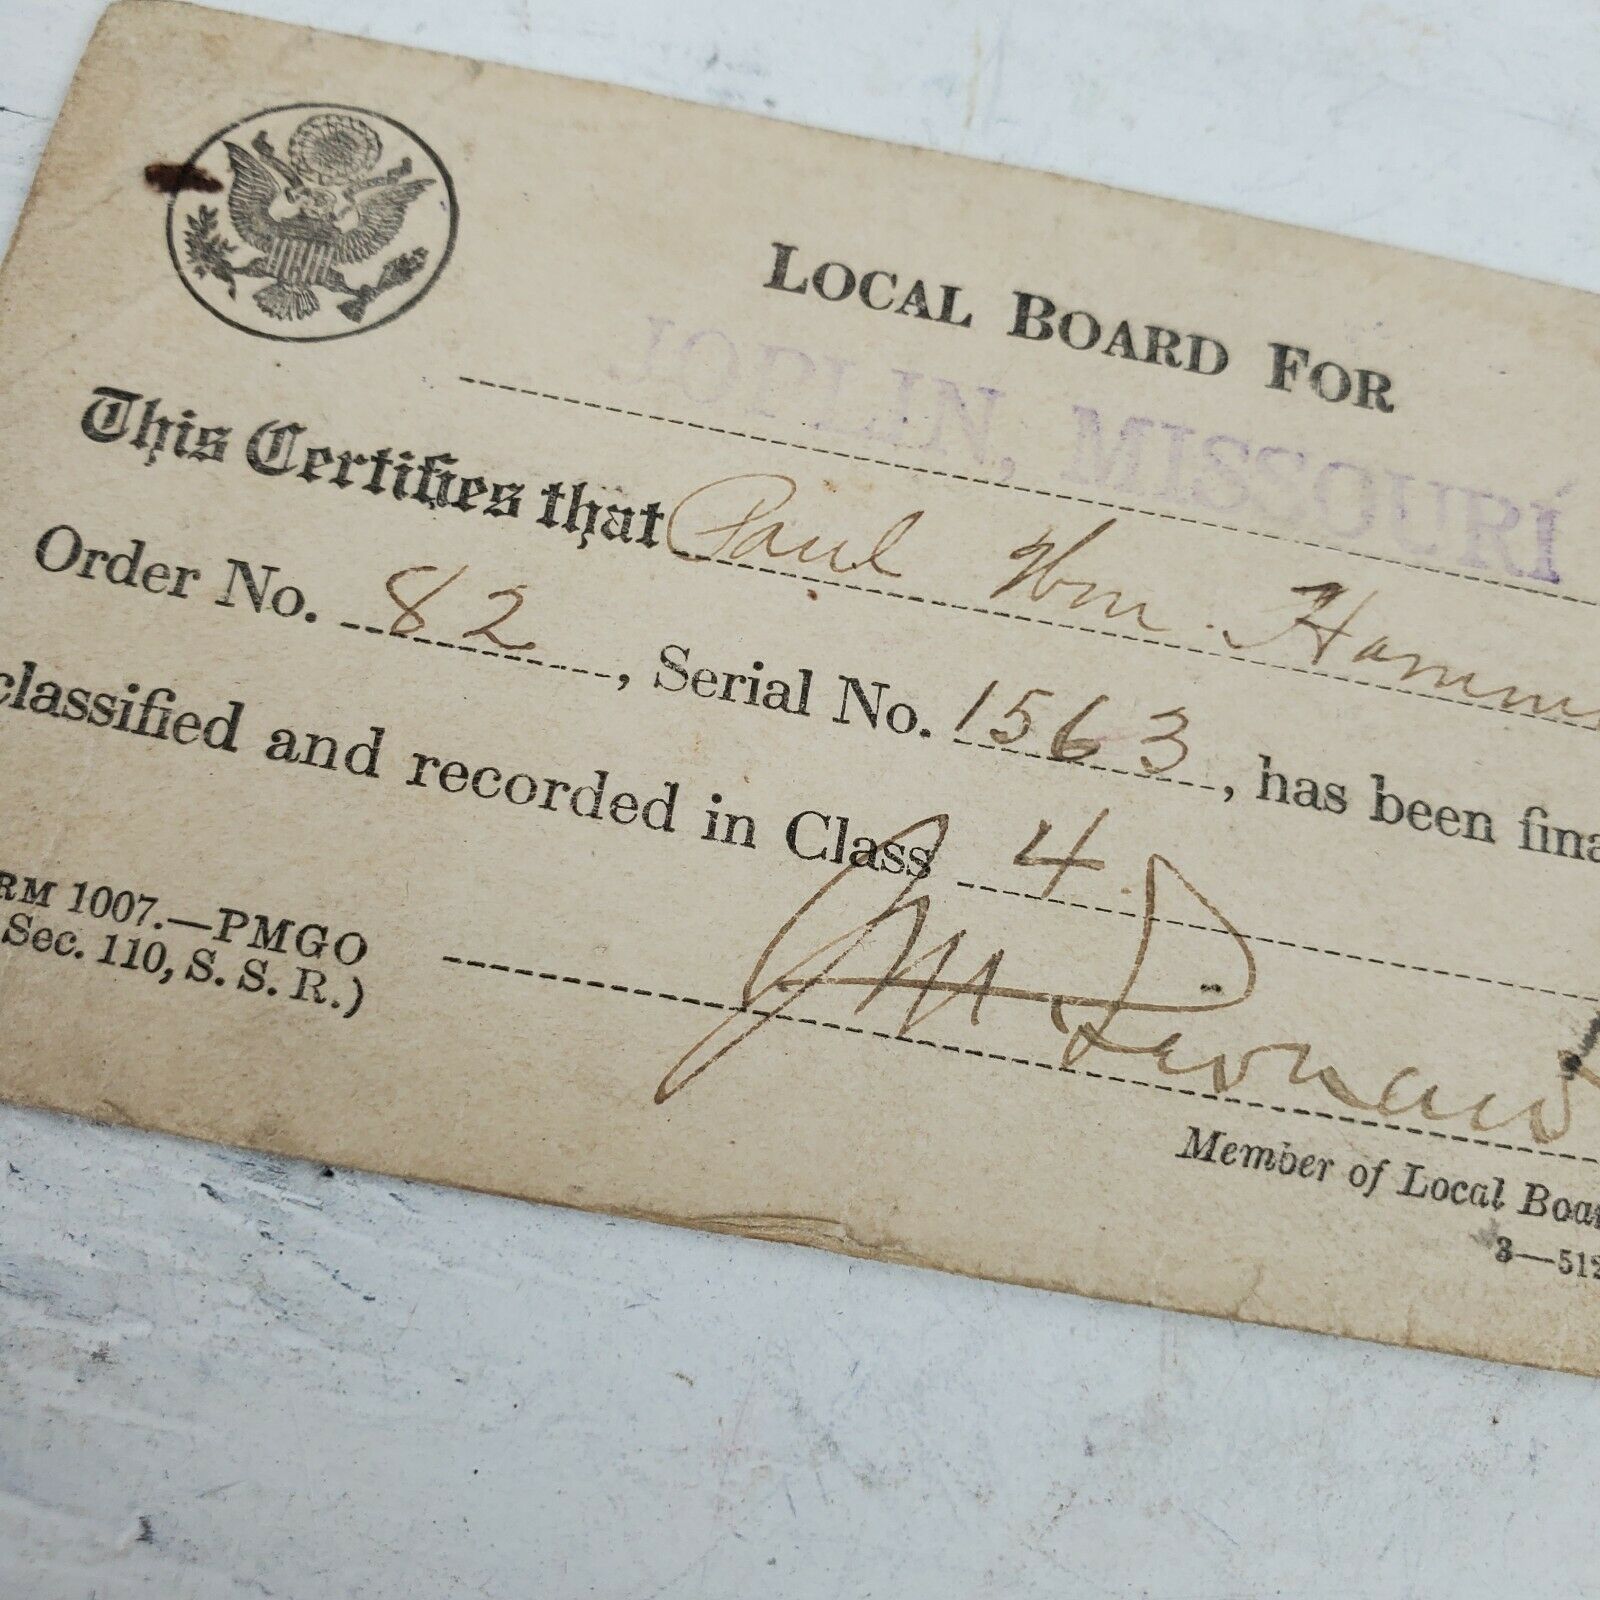 LOCAL BOARD FOR
JOPLIN, MISSOURI
This Certifies that Paul Wm. Hamm
Order No. 82, Serial No. 1563, has been fina
classified and recorded in Class 4.
RM 1007.—PMGO
Sec. 110, S. S. R.)
J M Leonard
Member of Local Boar
3—512